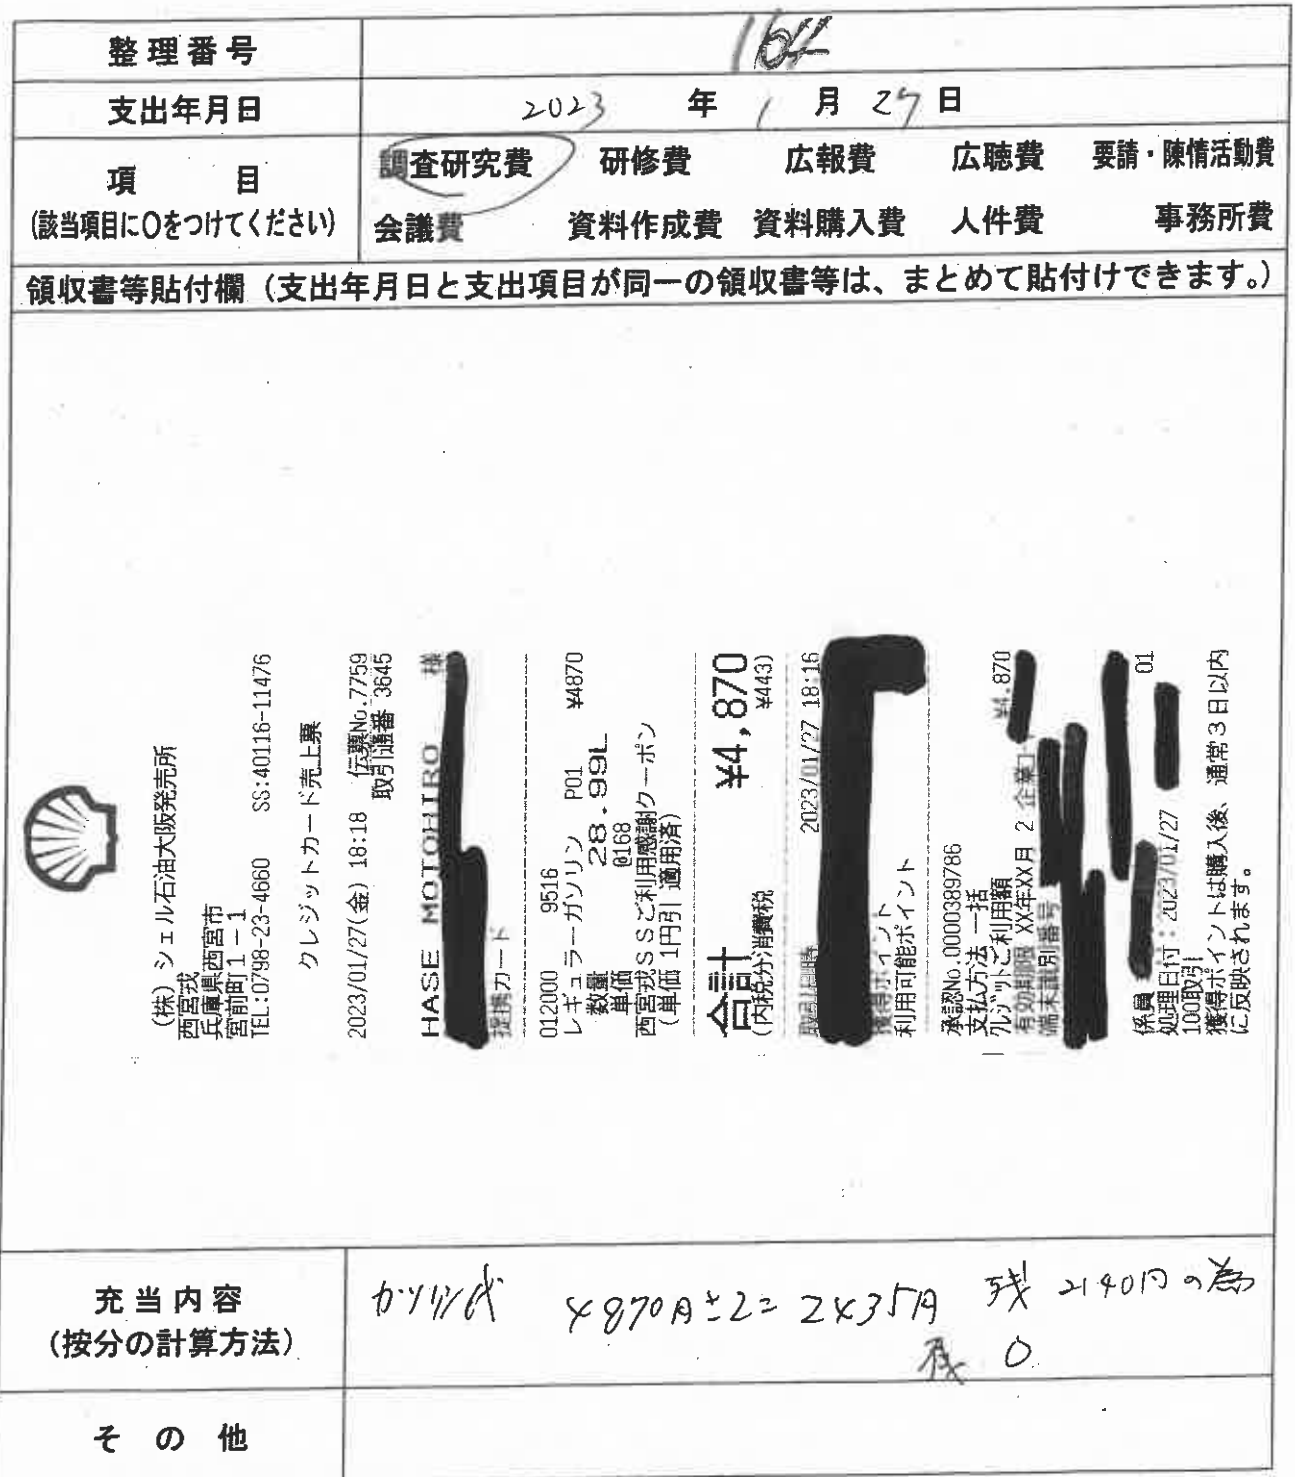 整理番号
164
支出年月日 2023 年 1 月 27 日
項 目
(該当項目に〇をつけてください)
調査研究費 研修費 広報費 広聴費 要請・陳情活動費
会議費 資料作成費 資料購入費 人件費 事務所費
領収書等貼付欄(支出年月日と支出項目が同一の領収書等は、まとめて貼付けできます。)
(株)シェル石油大阪発売所
西宮戎
兵庫県西宮市
宮前町1-1
TEL:0798-23-4660 SS:40116-11476
クレジットカード売上票
2023/01/27(金) 18:18 伝票No.7759
取引通番 3645
HASE MOTOHIRO 様
提携カード
012000 9516
レギュラーガソリン P01 ¥4870
数量 28.99L
単価 @168
西宮戎SSご利用感謝クーポン
(単価 1円引 適用済)
合計 ¥4,870
(内税分消費税 ¥443)
取引日時 2023/01/27 18:16
獲得ポイント
利用可能ポイント
承認No.0000389786
支払方法 一括
クレジットご利用額 ¥4,870
有効期限 XX年XX月 2 企業
端末識別番号
係員 01
処理日付:2023/01/27
100取引
獲得ポイントは購入後、通常3日以内
に反映されます。
充当内容
(按分の計算方法)
ガソリン代 4870円÷2=2435円 残 2140円の為
残 0
その他